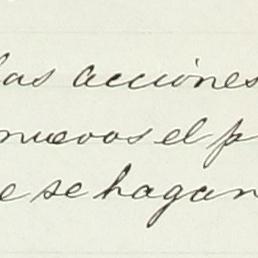 las acciones
nuevos el p
e se hagan